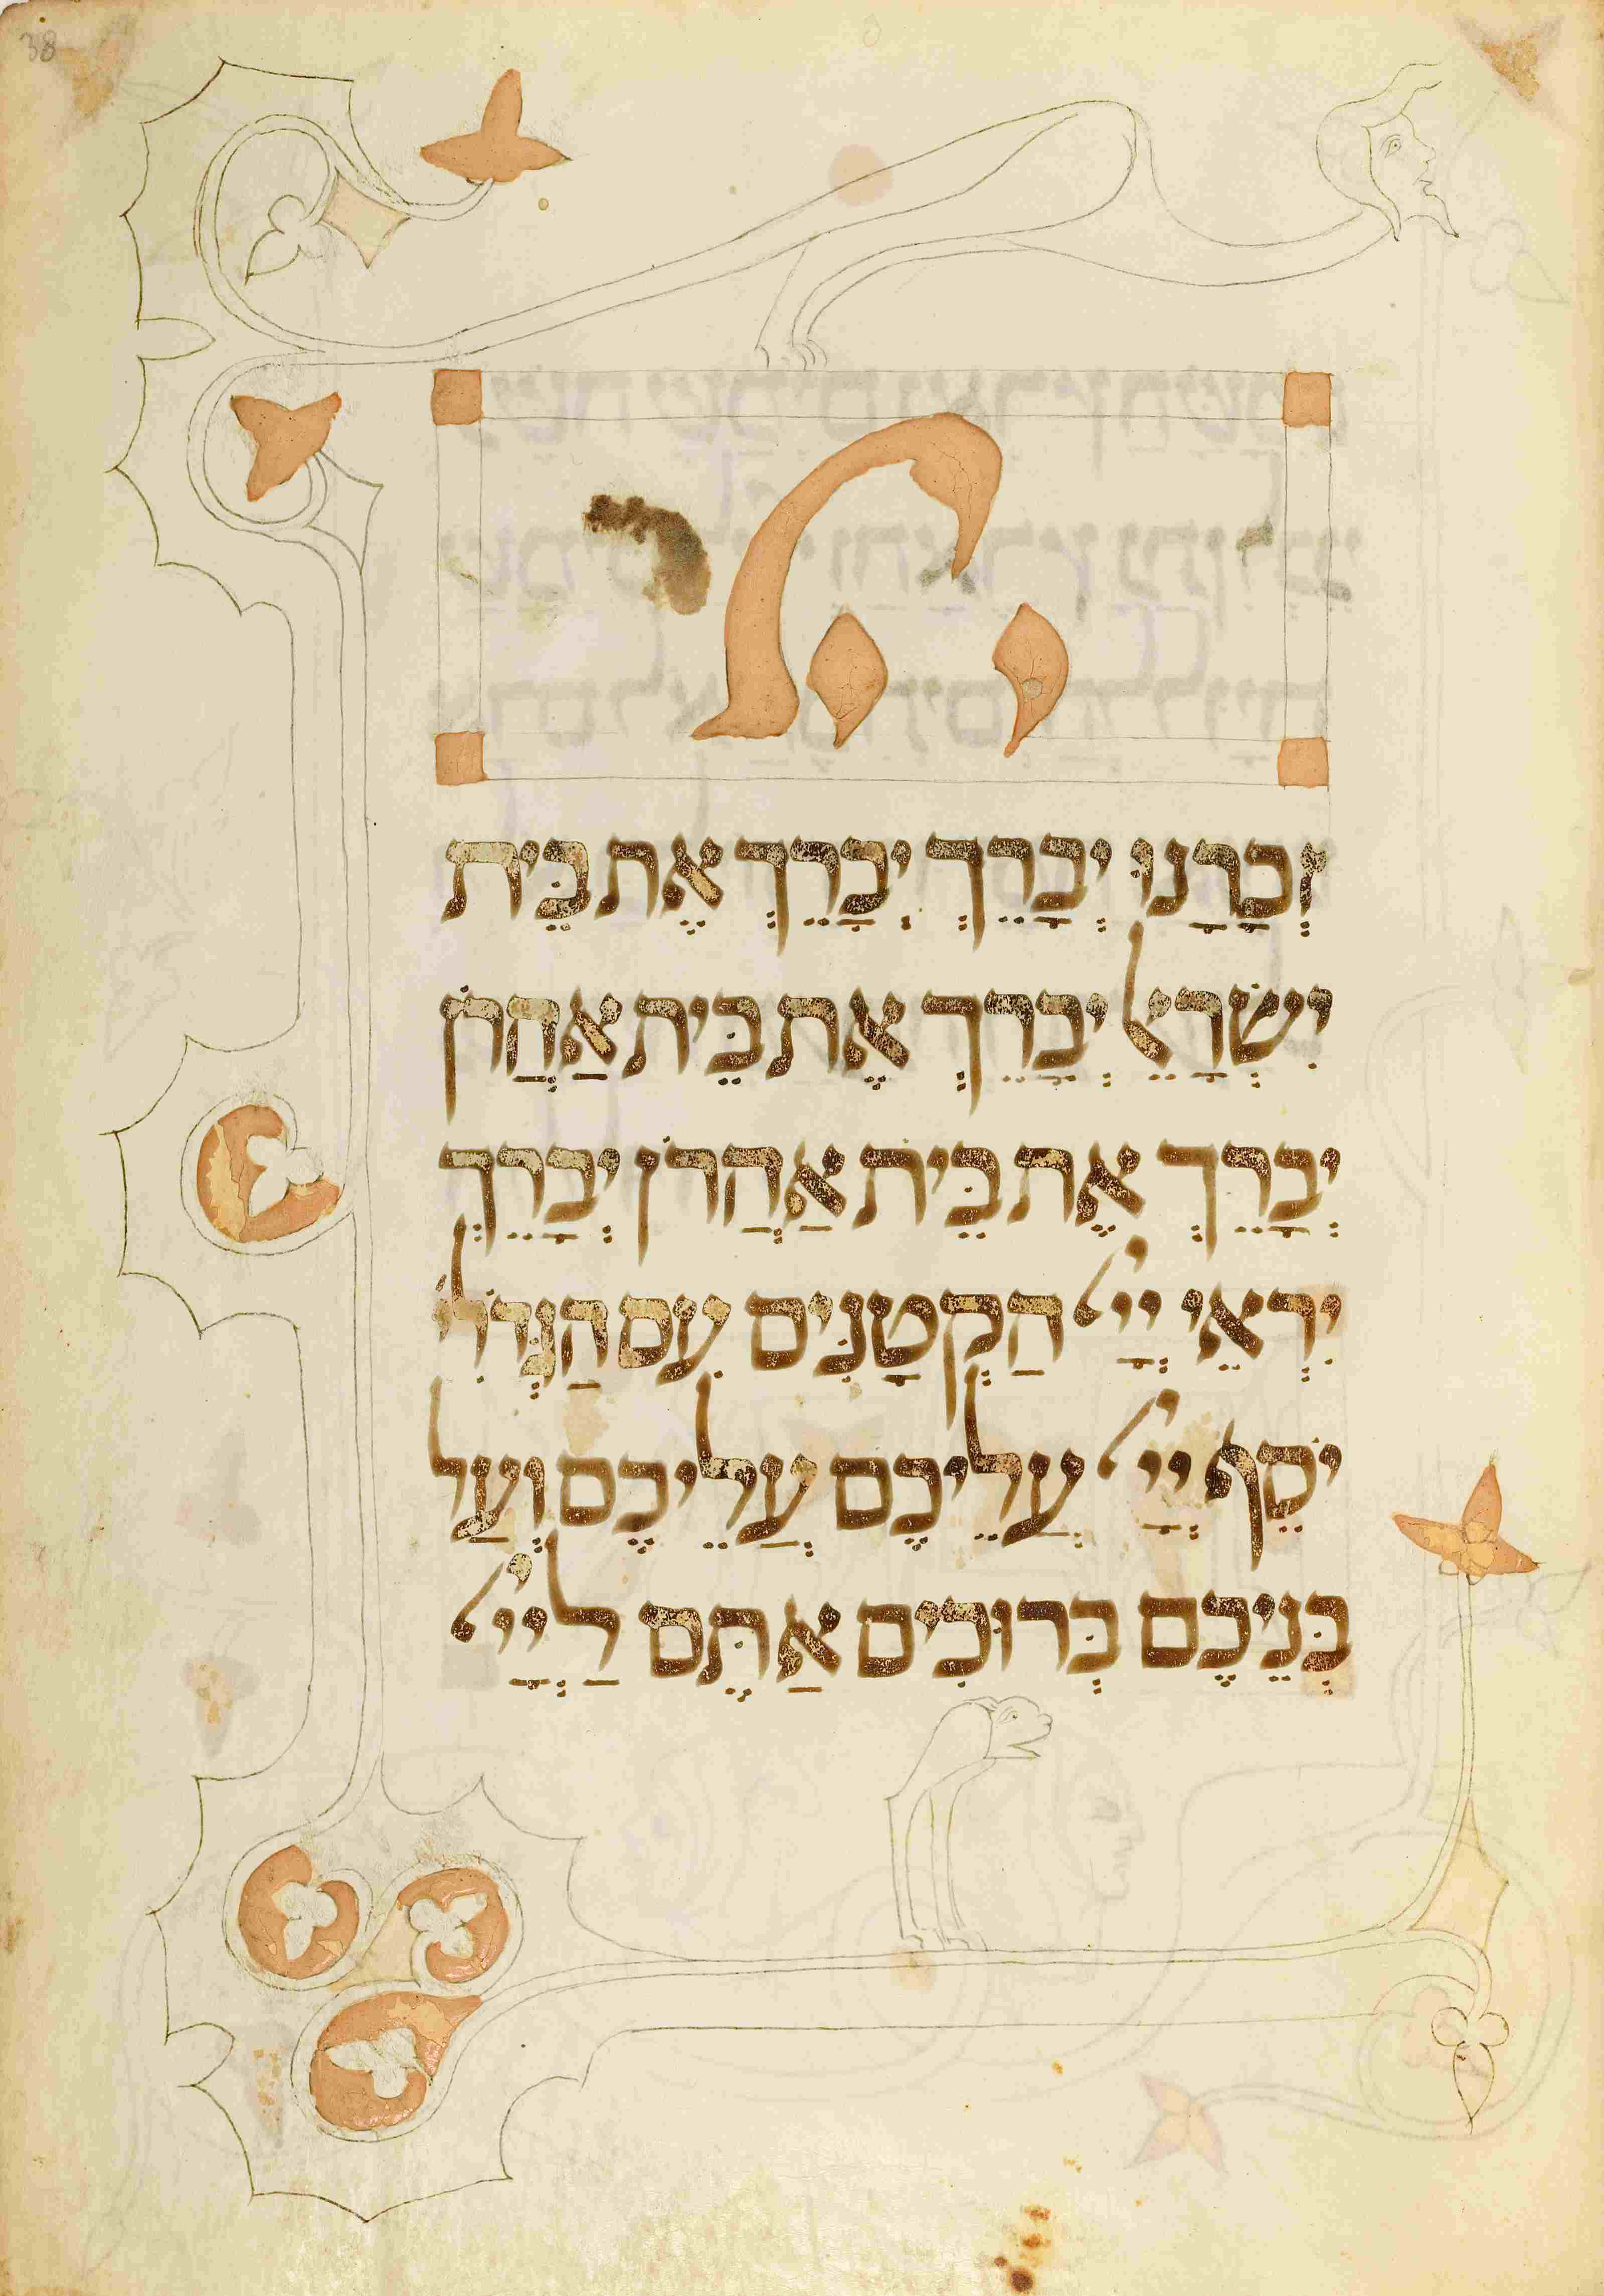 38
יי
זְכָרָנוּ יְבָרֵךְ יְבָרֵךְ אֶת בֵּית
יִשְׂרָאֵל יְבָרֵךְ אֶת בֵּית אַהֲרֹן
יְבָרֵךְ אֶת בֵּית אַהֲרֹן יְבָרֵךְ
יִרְאֵי יְיָ הַקְטָנִּים עִם הַגְּדֹלִי
יֹסֵף יְיָ עֲלֵיכֶם עֲלֵיכֶם וְעַל
בְּנֵיכֶם בְּרוּכִים אַתֶּם לַיְיָ